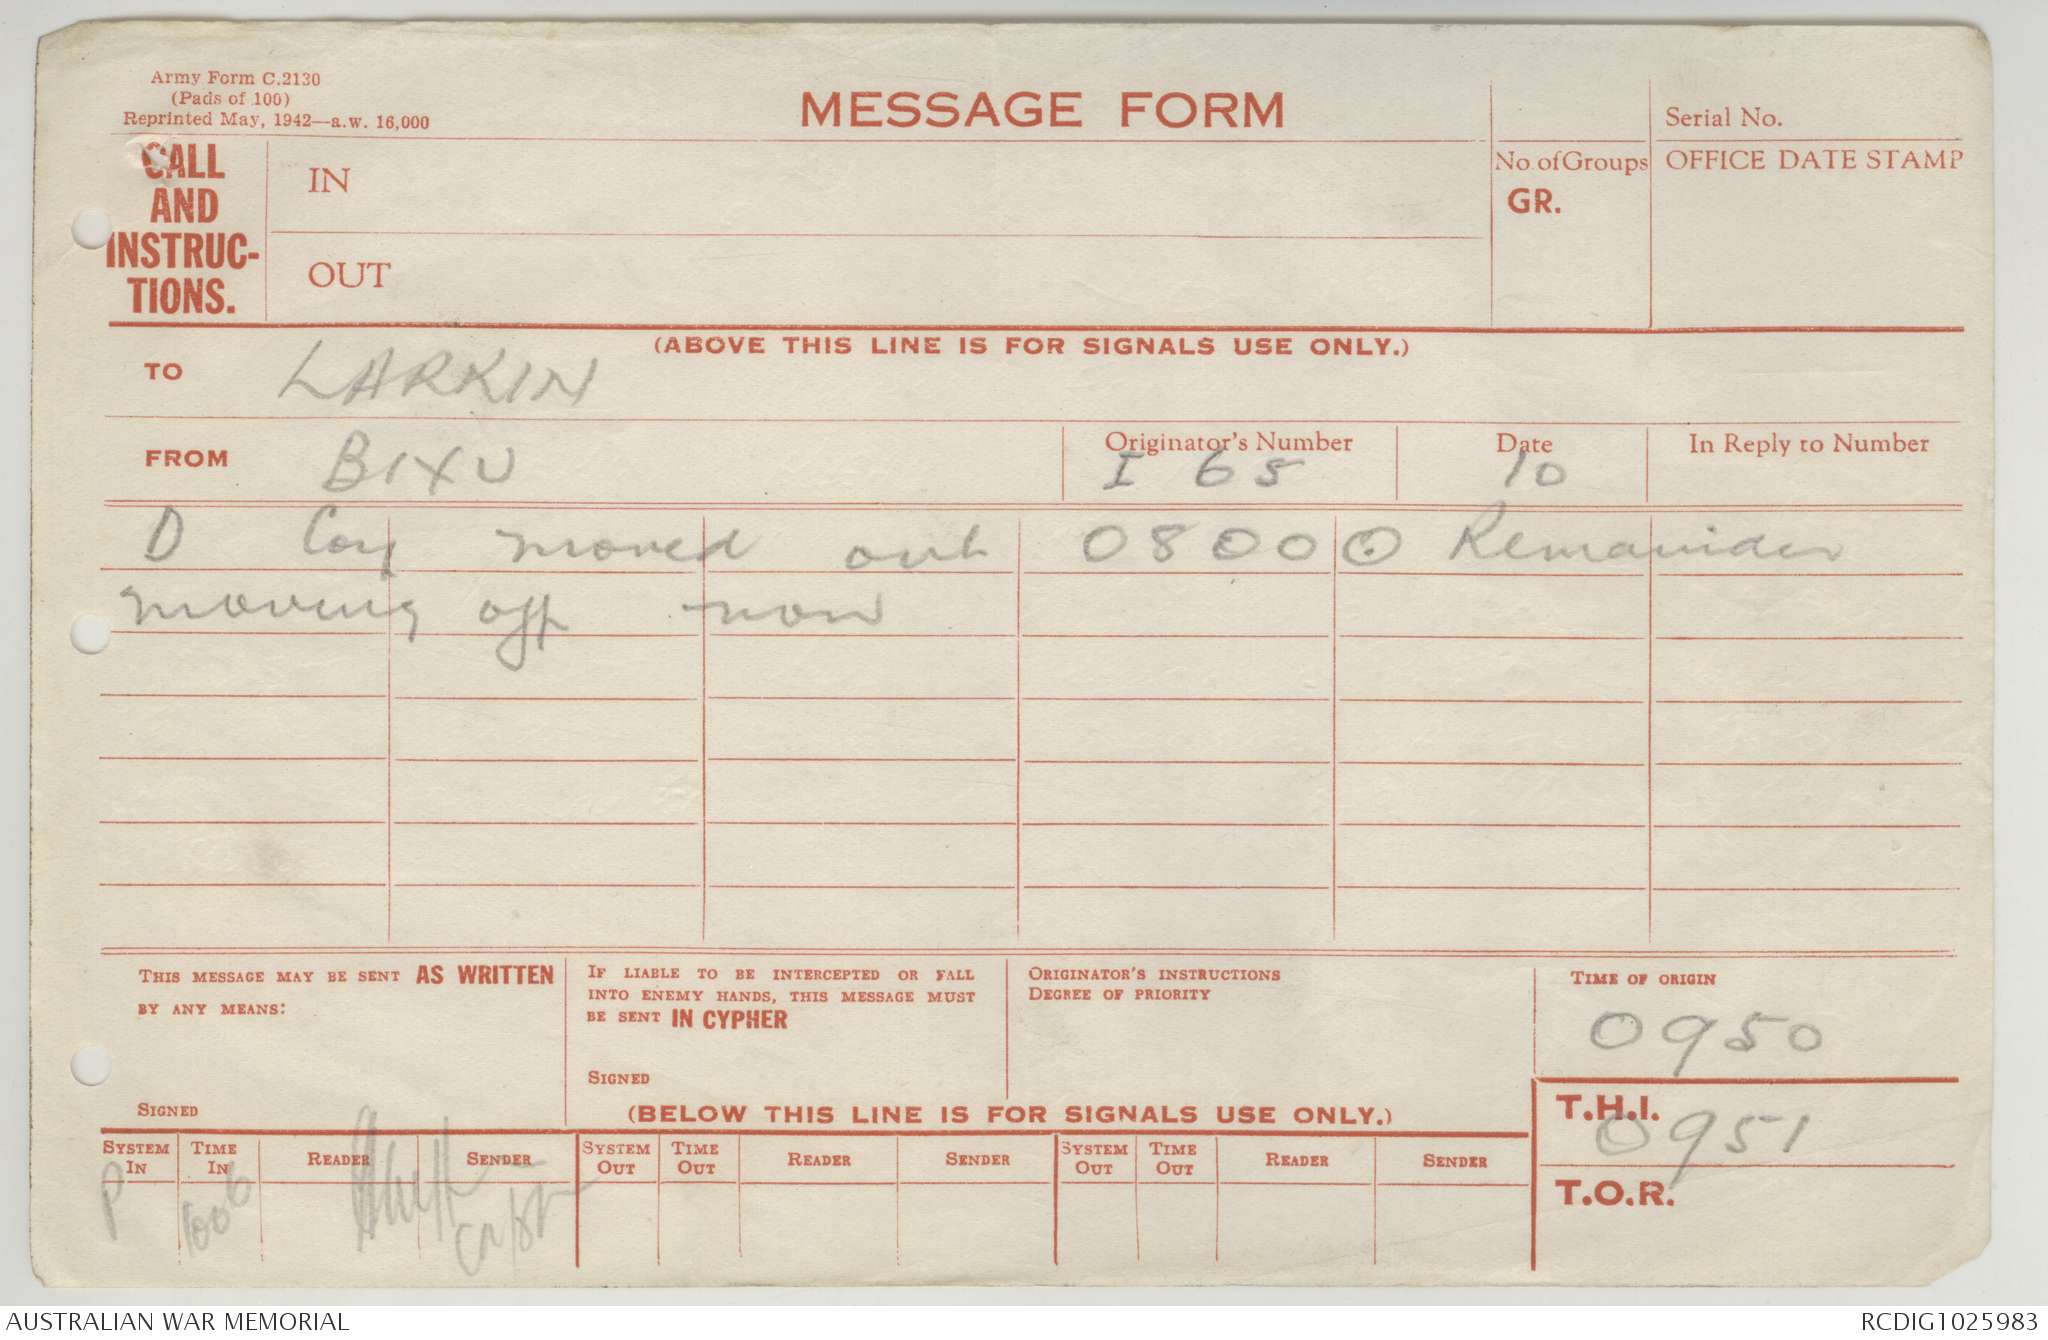 Army Form C.2130
(Pads of 100)
Reprinted May, 1942—a.w. 16,000
MESSAGE FORM
Serial No.
CALL
AND
INSTRUC-
TIONS.
IN
OUT
No. of Groups
GR.
OFFICE DATE STAMP
(ABOVE THIS LINE IS FOR SIGNALS USE ONLY.)
TO LARKIN
FROM BIXU
Originator's Number
I 65
Date
10
In Reply to Number
D Coy moved out 0800 ⊙ Remainder
moving off now
THIS MESSAGE MAY BE SENT AS WRITTEN
BY ANY MEANS:
SIGNED
IF LIABLE TO BE INTERCEPTED OR FALL
INTO ENEMY HANDS, THIS MESSAGE MUST
BE SENT IN CYPHER
SIGNED
ORIGINATOR'S INSTRUCTIONS
DEGREE OF PRIORITY
TIME OF ORIGIN
0950
(BELOW THIS LINE IS FOR SIGNALS USE ONLY.)
T.H.I.
0951
T.O.R.
SYSTEM IN TIME IN READER SENDER SYSTEM OUT TIME OUT READER SENDER SYSTEM OUT TIME OUT READER SENDER
P 1006 Capt
AUSTRALIAN WAR MEMORIAL
RCDIG1025983